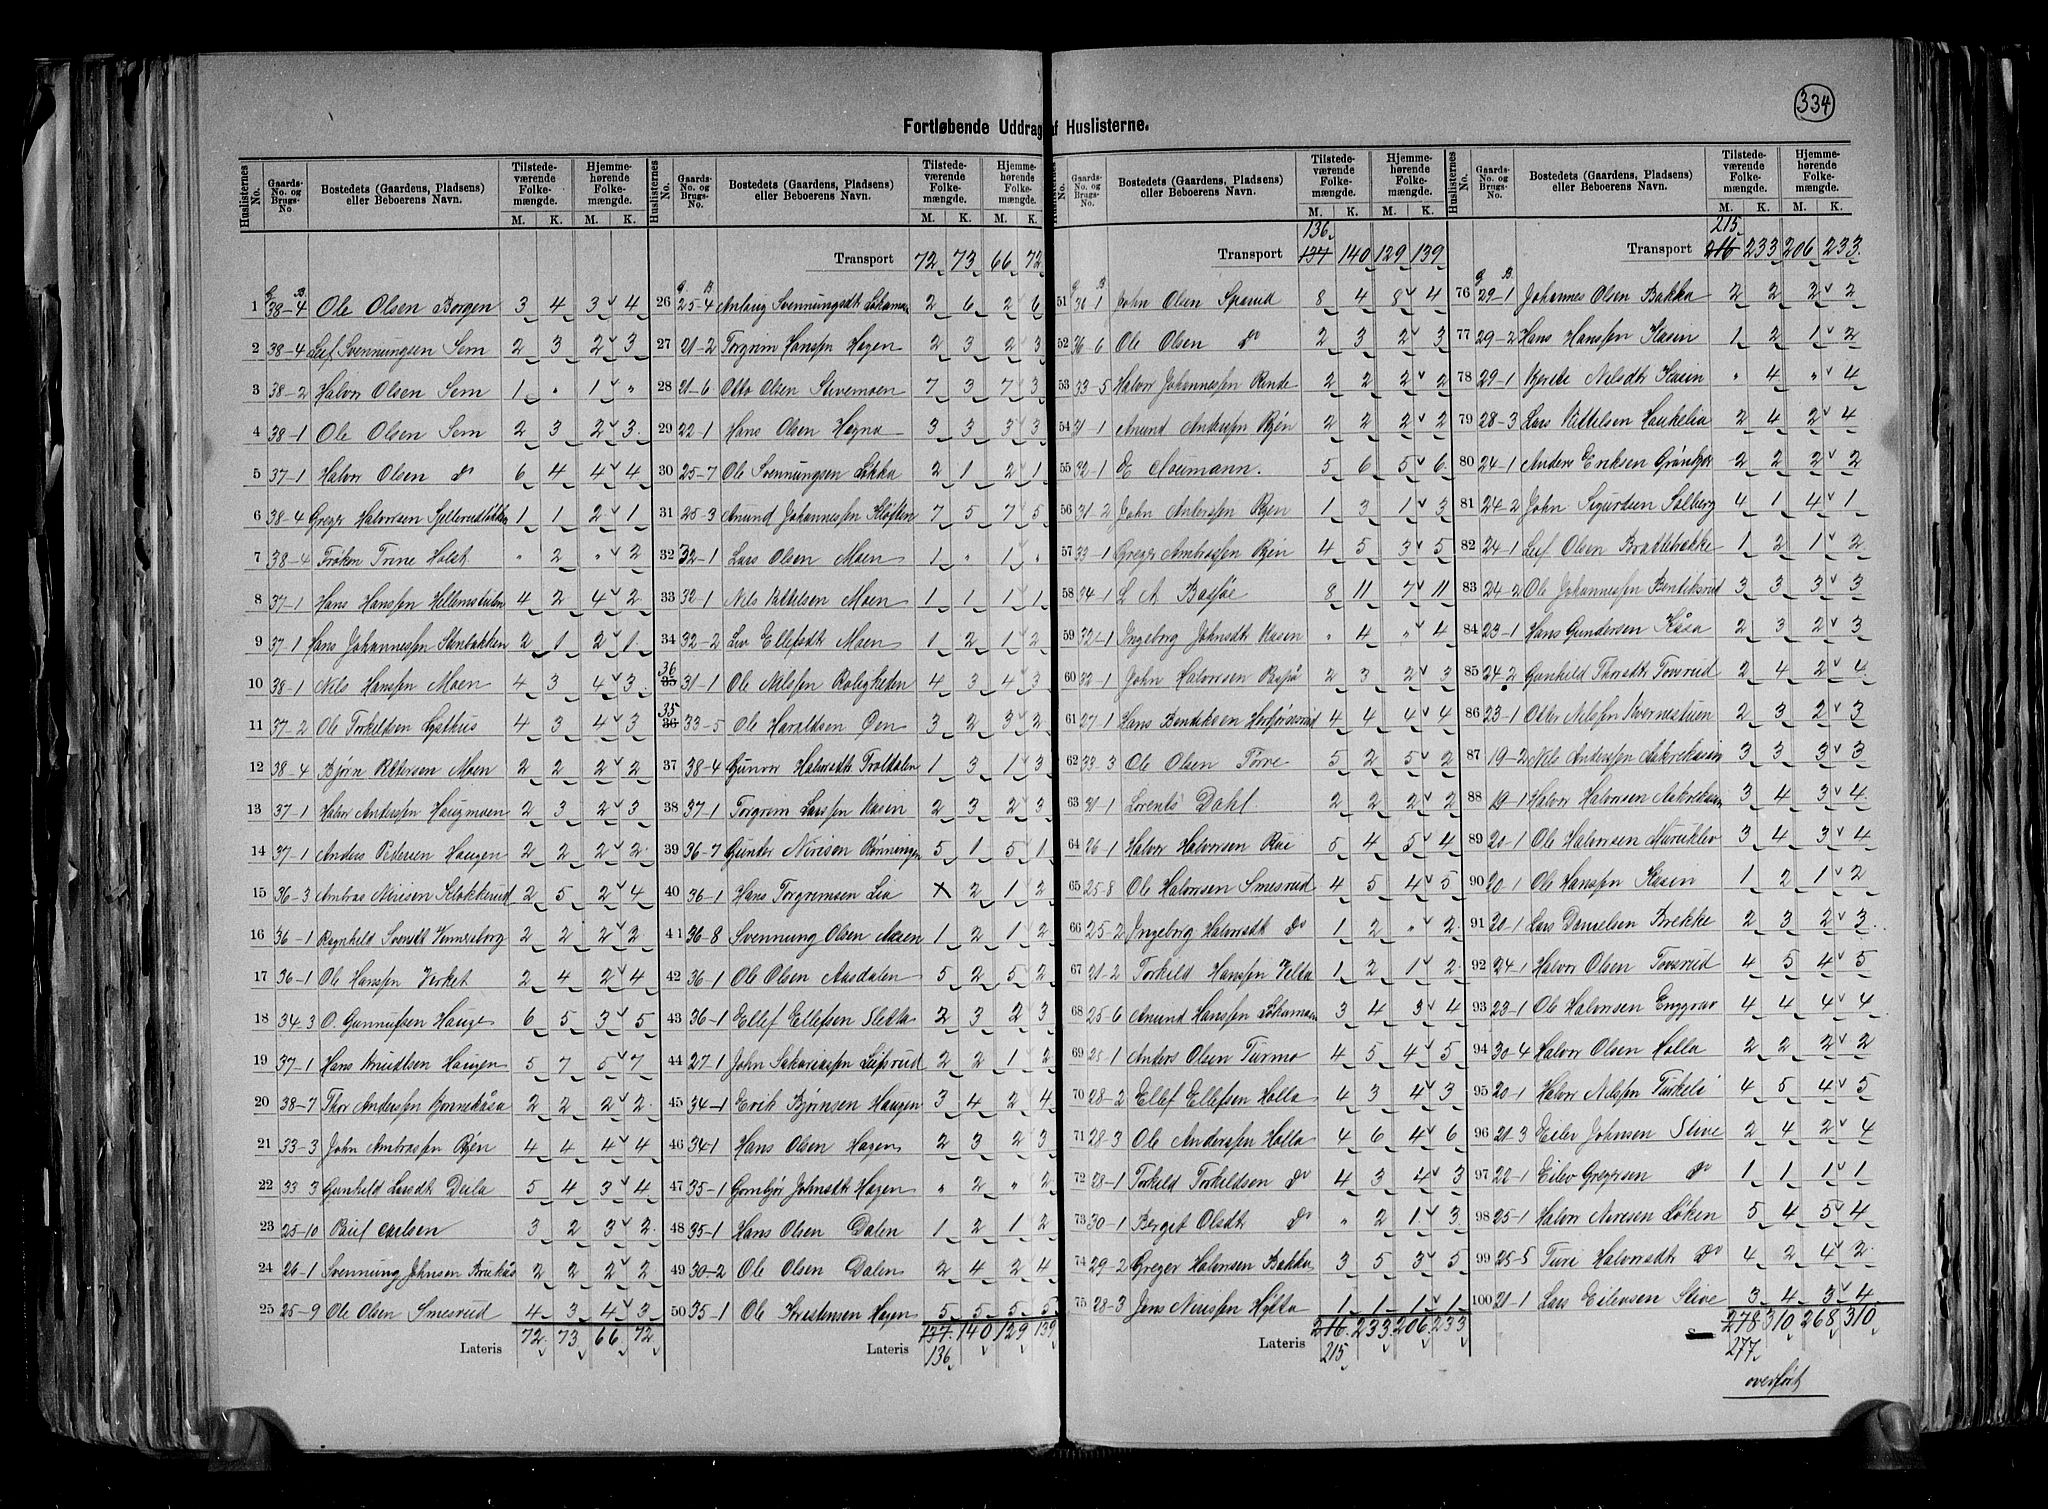 334
Fortløbende Uddrag af Huslisterne.
Huslisternes No. Gaards-No. og Brugs-No. Bostedets (Gaardens, Pladsens) eller Beboerens Navn. Tilstedeværende Folkemængde. M. K. Hjemmehørende Folkemængde. M. K.
G. B.
1 38-4 Ole Olsen Borgen 3 4 3 4
2 38-4 Leif Svennungsen Sem 2 3 2 3
3 38-2 Halvor Olsen Sem 1 " 1 "
4 38-1 Ole Olsen Sem 2 3 2 3
5 37-1 Halvor Olsen do 6 4 4 4
6 38-4 Greger Halvorsen 1 1 2 1
7 38-4 Frøken Trine Holst " 2 " 2
8 37-1 Hans Hanssen 4 2 4 2
9 37-1 Hans Johannessen Stenbakken 2 1 2 1
10 38-1 Nils Hanssen Moen 4 3 4 3
11 37-2 Ole Torkilsen Lysthus 4 3 4 3
12 38-4 Bjørn Pettersen Moen 2 2 2 2
13 37-1 Halvor Anderssen Haugmoen 2 3 2 3
14 37-1 Anders Petersen Haugen 2 2 2 2
15 36-3 Ambros Nirisen Klokkerud 2 5 2 4
16 36-1 Ragnhild Svensdt 2 2 2 2
17 36-1 Ole Hanssen Verket 2 4 2 4
18 34-3 O. Gunnufsen Hauge 6 5 3 5
19 37-1 Hans Knudtsen Haugen 5 7 5 7
20 38-7 Thor Anderssen Bonnekåsa 2 2 2 2
21 33-3 John Ambrossen Bøen 4 4 4 4
22 33 3 Gunhild Larsdt Deila 5 4 3 4
23 25-10 Paul Carlsen 3 2 3 2
24 26-1 Svennung Johnsen Brukås 2 2 2 2
25 25-9 Ole Olsen Smesrud 4 3 4 3
Lateris 72 73 66 72
Huslisternes No. Gaards-No. og Brugs-No. Bostedets (Gaardens, Pladsens) eller Beboerens Navn. Tilstedeværende Folkemængde. M. K. Hjemmehørende Folkemængde. M. K.
Transport 72 73 66 72
G. B.
26 25-4 Anlaug Svennungsdt Løkamoen 2 6 2 6
27 21-2 Torgrim Hanssen Hagen 2 3 2 3
28 21-6 Otto Olsen Stivemoen 7 3 7 3
29 22-1 Hans Olsen Hegna 3 3 3 3
30 25-7 Ole Svennungsen Løkka 2 1 2 1
31 25-3 Anund Johannessen Kløften 7 5 7 5
32 32-1 Lars Olsen Moen 1 " 1 "
33 32-1 Nils Kittilsen Moen 1 1 1 1
34 32-2 Liv Ellefsdt Moen 1 2 1 2
36 35 31-1 Ole Nilssen Roligheden 4 3 4 3
35 36 33-5 Ole Haraldsen Øen 3 2 3 2
37 38-4 Gunvor Halvorsdt Troldalen 1 3 1 3
38 37-1 Torgrim Larssen Kasin 2 3 2 3
39 36-7 Gunder Nirisen Rønningen 5 1 5 1
40 36-1 Hans Torgrimsen Lia X 2 1 2
41 36-8 Svennung Olsen Aasen 1 2 1 2
42 36-1 Ole Olsen Aasdalen 5 2 5 2
43 36-1 Ellef Ellefsen Sletta 2 3 2 3
44 27-1 John Sakariassen Leifsrud 2 2 1 2
45 34-1 Erik Bjørnsen Haugen 3 4 2 4
46 34-1 Hans Olsen Hagen 2 3 2 3
47 35-1 Gombjør Johnsdt Hagen " 2 " 2
48 35-1 Hans Olsen Dalen 1 2 1 2
49 30-2 Ole Olsen Dalen 2 4 2 4
50 35-1 Ole Kristensen Hagen 5 5 5 5
137 140 129 139
Lateris 136
Huslisternes No. Gaards-No. og Brugs-No. Bostedets (Gaardens, Pladsens) eller Beboerens Navn. Tilstedeværende Folkemængde. M. K. Hjemmehørende Folkemængde. M. K.
136
Transport 137 140 129 139
G. B.
51 36 1 John Olsen Sparud 8 4 8 4
52 36 6 Ole Olsen do 2 3 2 3
53 33-5 Halvor Johannessen Rinde 2 2 2 2
54 31-1 Anund Anderssen Bøen 2 2 2 2
55 32-1 E Neumann. 5 6 5 6
56 31-2 John Anderssen Bøen 1 3 1 3
57 33-1 Greger Ambrossen Bøen 4 5 3 5
58 34-1 L A Basøe 8 11 7 11
59 32-1 Ingeborg Johnsdt Kasen " 4 " 4
60 32-1 John Halvorsen 2 3 2 3
61 27-1 Hans Bendiksen 4 4 4 4
62 33 3 Ole Olsen Torve 5 2 5 2
63 31-1 Lorents Dahl 2 2 2 2
64 26-1 Halvor Halvorsen Rui 5 4 5 4
65 25-8 Ole Halvorsen Smesrud 4 5 4 5
66 25-2 Ingeborg Halvorsdt do 1 2 " 2
67 21-2 Torkild Hanssen Velta 1 2 1 2
68 25-6 Anund Hanssen Løkamoen 3 4 3 4
69 28-1 Anders Olsen Turmo 4 5 4 5
70 28-2 Ellef Ellefsen Holla 4 3 4 3
71 28-3 Ole Anderssen Holla 4 6 4 6
72 28-1 Torkild Torkildsen do 4 3 4 3
73 30-1 Berget Olsdt do " 2 1 3
74 29-2 Greger Halvorsen Bakka 3 5 3 5
75 28-3 Jens Nirissen Hytta 1 1 1 1
216 233 206 233
Lateris 215
Huslisternes No. Gaards-No. og Brugs-No. Bostedets (Gaardens, Pladsens) eller Beboerens Navn. Tilstedeværende Folkemængde. M. K. Hjemmehørende Folkemængde. M. K.
215
Transport 216 233 206 233
G. B.
76 29-1 Johannes Olsen Bakka 2 2 2 2
77 29-2 Hans Hanssen Kasin 1 2 1 2
78 29-1 Bereke Nilsdt Kasin " 4 " 4
79 28-3 Lars Kittilsen Haukelia 2 4 2 4
80 24-1 Anders Eriksen 2 2 2 2
81 24-2 John Sigurdsen Solberg 4 1 4 1
82 24-1 Leif Olsen Brattebække 1 2 1 2
83 24-2 Ole Johannessen Bendiksrud 3 3 3 3
84 23-1 Hans Gundersen Kåsa 2 3 2 3
85 24-2 Gunhild Thorsdt Tovsrud 2 4 2 4
86 23-1 Otter Nilssen Kvernestuen 2 3 2 3
87 19-2 Nils Anderssen Aakrekasin 3 3 3 3
88 19-1 Halvor Halvorsen Aakrekasin 3 4 3 4
89 20-1 Ole Halvorsen Mureklev 3 4 3 4
90 20-1 Ole Hanssen Kasin 1 2 1 2
91 20-1 Lars Danielsen Brekke 2 3 2 3
92 24-1 Halvor Olsen Tovsrud 4 5 4 5
93 23-1 Ole Halvorsen Enggrav 4 4 4 4
94 30-4 Halvor Olsen Holla 2 2 2 2
95 20-1 Halvor Nilssen Turkeli 4 5 4 5
96 21-3 Eilev Johnsen Stive 2 4 2 4
97 22-1 Eilev Gregersen do 1 1 1 1
98 25-1 Halvor Nirisen Løken 5 4 5 4
99 25-5 Turi Halvorsdt do 4 2 4 2
100 21-1 Lars Eilevsen Stive 3 4 3 4
278 310 268 310
277
overført